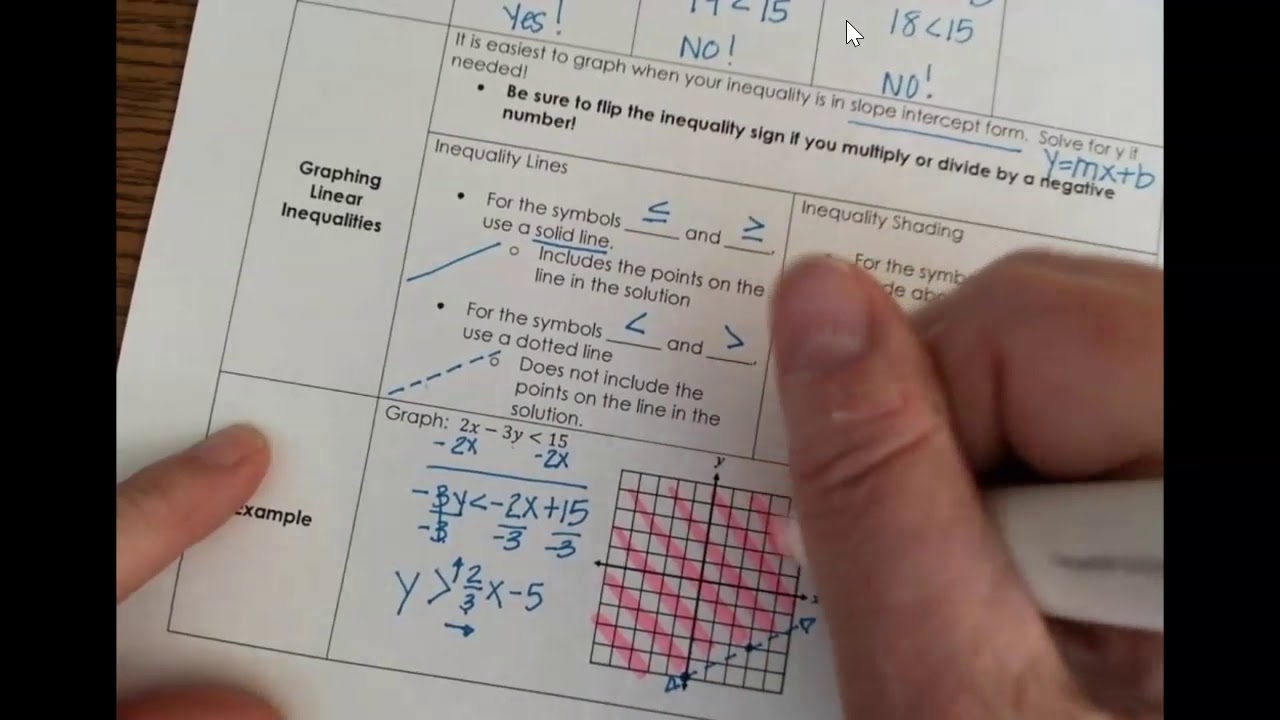 Yes!
< 15
NO!
18<15
NO!
It is easiest to graph when your inequality is in slope intercept form. Solve for y if
needed!
y=mx+b
• Be sure to flip the inequality sign if you multiply or divide by a negative
number!
Graphing
Linear
Inequalities
Inequality Lines
• For the symbols ≤ and ≥,
use a solid line.
o Includes the points on the
line in the solution
• For the symbols < and >,
use a dotted line
o Does not include the
points on the line in the
solution.
Inequality Shading
For the
Example
Graph: 2x – 3y < 15
-2x -2x
-3y<-2x+15
-3 -3 -3
y > 2/3 x - 5
y
x